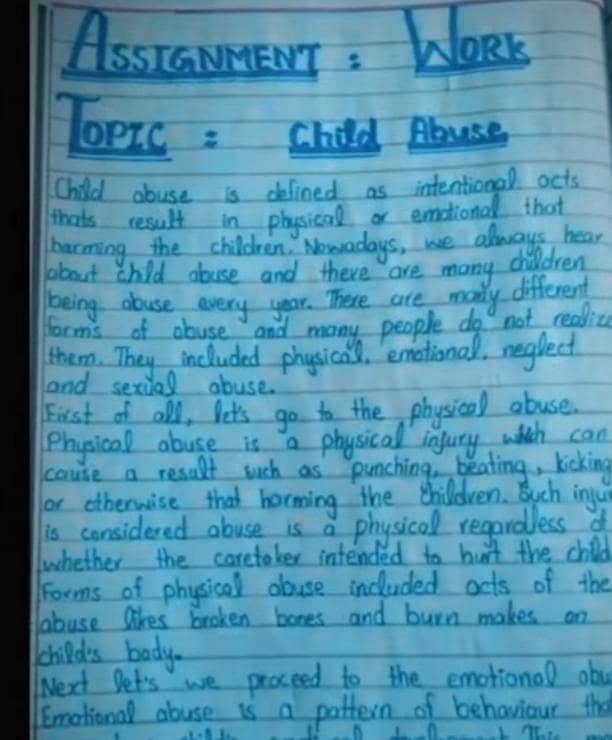 ASSIGNMENT : WORK
TOPIC : Child Abuse
Child abuse is defined as intentional acts
thats result in physical or emotional that
harming the children. Nowadays, we always hear
about child abuse and there are many children
being abuse every year. There are many different
forms of abuse and many people do not realize
them. They included physical, emotional, neglect
and sexual abuse.
First of all, let's go to the physical abuse.
Physical abuse is a physical injury which can
cause a result such as punching, beating, kicking
or otherwise that harming the children. Such inju
is considered abuse is a physical regardless o
whether the caretaker intended to hurt the child
Forms of physical abuse included acts of the
abuse likes broken bones and burn makes on
child's body.
Next let's we proceed to the emotional abu
Emotional abuse is a pattern of behaviour tha